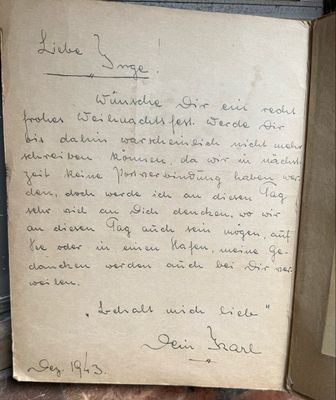 Liebe Inge!
Wünsche Dir ein recht
frohes Weihnachtsfest. Werde Dir
bis dahin warscheinlich nicht mehr
schreiben können, da wir in nächst.
zeit keine Postverbindung haben wer
den, doch werde ich an diesen Tag
sehr viel an Dich dencken, wo wir
an diesen Tag auch sein mögen, auf
See oder in einen Hafen, meine Ge-
dancken werden auch bei Dir ver
weilen.
„Behalt mich lieb"
Dein Karl
Dez. 1943.